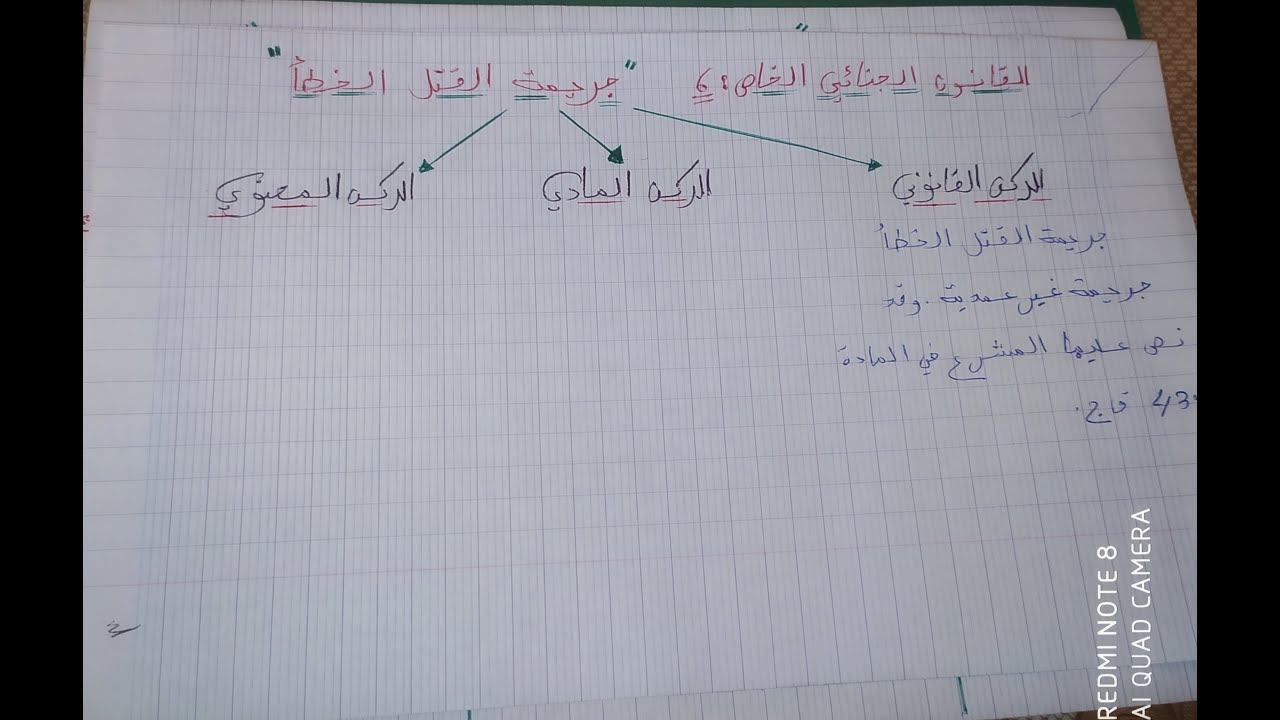 القانون الجنائي الخاص: 6 "جريمة القتل الخطأ"
الركن القانوني
الركن المادي
الركن المعنوي
جريمة القتل الخطأ
جريمة غير عمدية. وقد
نص عليها المشرع في المادة
43 ق ج.
REDMI NOTE 8
AI QUAD CAMERA